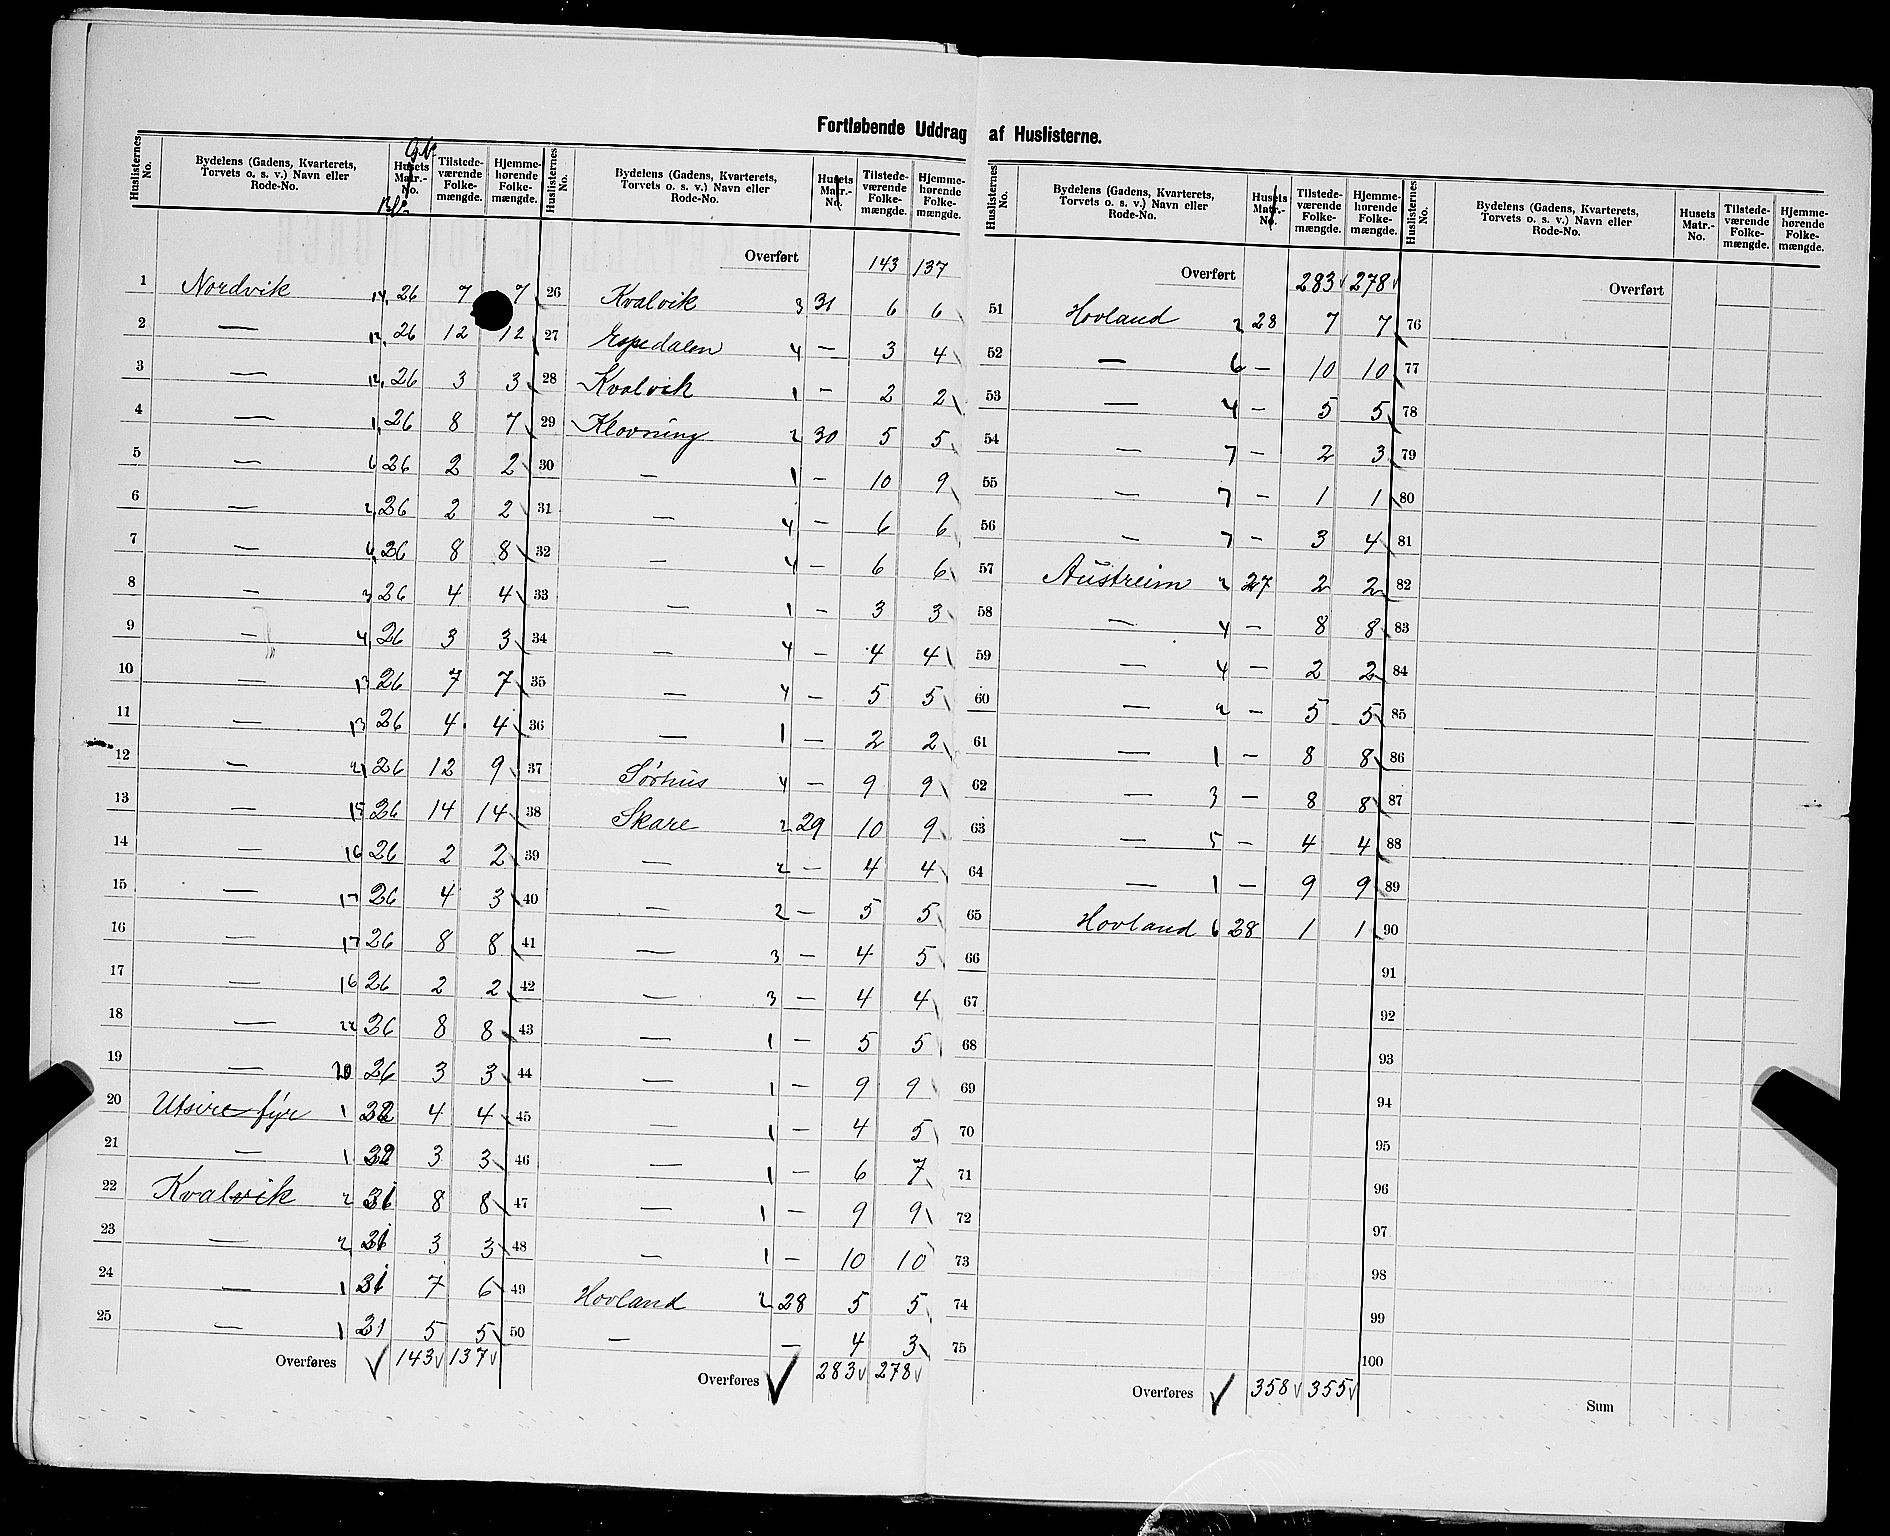 Fortløbende Uddrag af Huslisterne.
Huslisternes No. | Bydelens (Gadens, Kvarterets, Torvets o. s. v.) Navn eller Rode-No. | Husets Matr.-No. | Tilstedeværende Folkemængde. | Hjemmehørende Folkemængde.
1 Nordvik 14, 26 7 7
2 — 12, 26 12 12
3 — 12, 26 3 3
4 — 1, 26 8 7
5 — 6, 26 2 2
6 — 2, 26 2 2
7 — 4, 26 8 8
8 — 3, 26 4 4
9 — 4, 26 3 3
10 — 13 26 7 7
11 — 13 26 4 4
12 — 21 26 12 9
13 — 15 26 14 14
14 — 16 26 2 2
15 — 17 26 4 3
16 — 17 26 8 8
17 — 16 26 2 2
18 — 22 26 8 8
19 — 20 26 3 3
20 Utsire fyr 1 32 4 4
21 — 1 32 3 3
22 Kvalvik 2 31 8 8
23 — 2 31 3 3
24 — 1 31 7 6
25 — 1 31 5 5
Overføres 143 137
Huslisternes No. | Bydelens (Gadens, Kvarterets, Torvets o. s. v.) Navn eller Rode-No. | Husets Matr.-No. | Tilstedeværende Folkemængde. | Hjemmehørende Folkemængde.
Overført 143 137
26 Kvalvik 3 31 6 6
27 Espedalen 4 — 3 4
28 Kvalvik 1 — 2 2
29 Klovning 2 30 5 5
30 — 1 — 10 9
31 — 4 — 6 6
32 — 4 — 6 6
33 — 1 — 3 3
34 — 4 — 4 4
35 — 4 — 5 5
36 — 1 — 2 2
37 Sørhus 4 — 9 9
38 Skare 2 29 10 9
39 — 2 — 4 4
40 — 2 — 5 5
41 — 3 — 4 5
42 — 3 — 4 4
43 — 1 — 5 5
44 — 1 — 9 9
45 — 1 — 4 5
46 — 1 — 6 7
47 — 1 — 9 9
48 — 1 — 10 10
49 Hovland 2 28 5 5
50 — — 4 3
Overføres 283 278
Huslisternes No. | Bydelens (Gadens, Kvarterets, Torvets o. s. v.) Navn eller Rode-No. | Husets Matr.-No. | Tilstedeværende Folkemængde. | Hjemmehørende Folkemængde.
Overført 283 278
51 Hovland 2 28 7 7
52 — 6 — 10 10
53 — 4 — 5 5
54 — 7 — 2 3
55 — 7 — 1 1
56 — 7 — 3 4
57 Austreim 2 27 2 2
58 — 4 — 8 8
59 — 4 — 2 2
60 — 2 — 5 5
61 — 1 — 8 8
62 — 3 — 8 8
63 — 5 — 4 4
64 — 1 — 9 9
65 Hovland 6 28 1 1
66
67
68
69
70
71
72
73
74
75
Overføres 358 355
Huslisternes No. | Bydelens (Gadens, Kvarterets, Torvets o. s. v.) Navn eller Rode-No. | Husets Matr.-No. | Tilstedeværende Folkemængde. | Hjemmehørende Folkemængde.
Overført
76
77
78
79
80
81
82
83
84
85
86
87
88
89
90
91
92
93
94
95
96
97
98
99
100
Sum